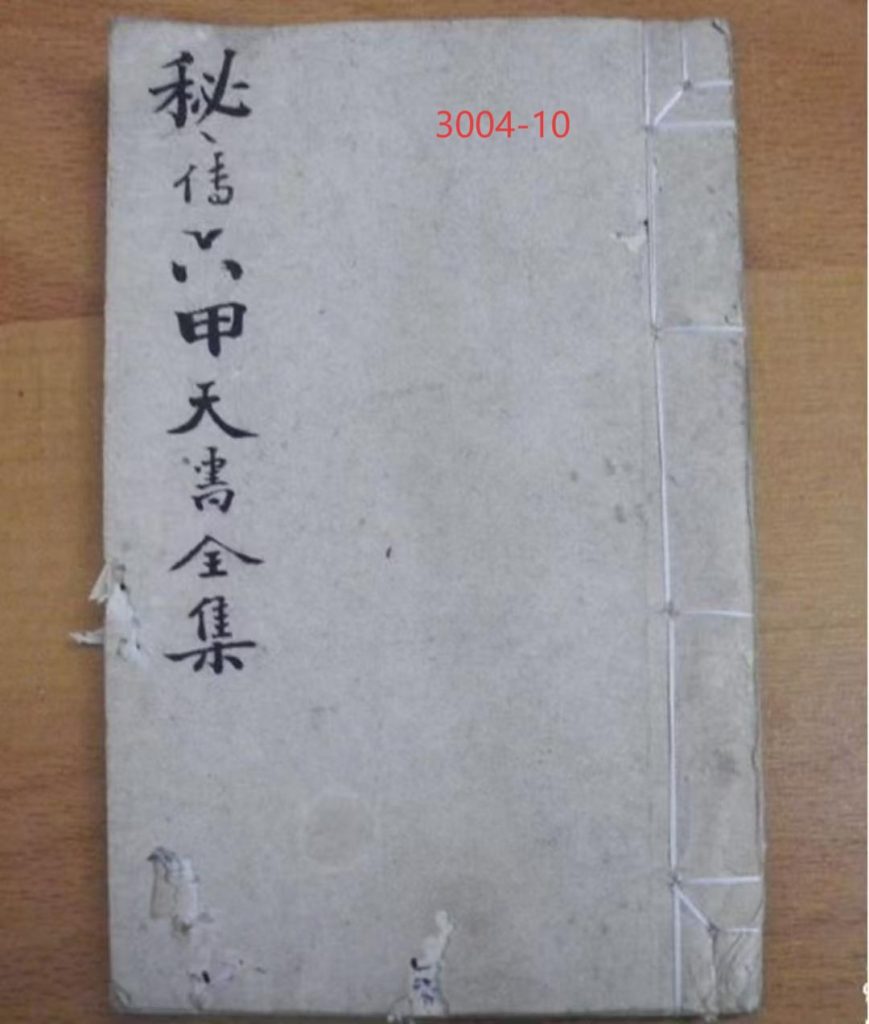 秘傳六甲天書全集
3004-10